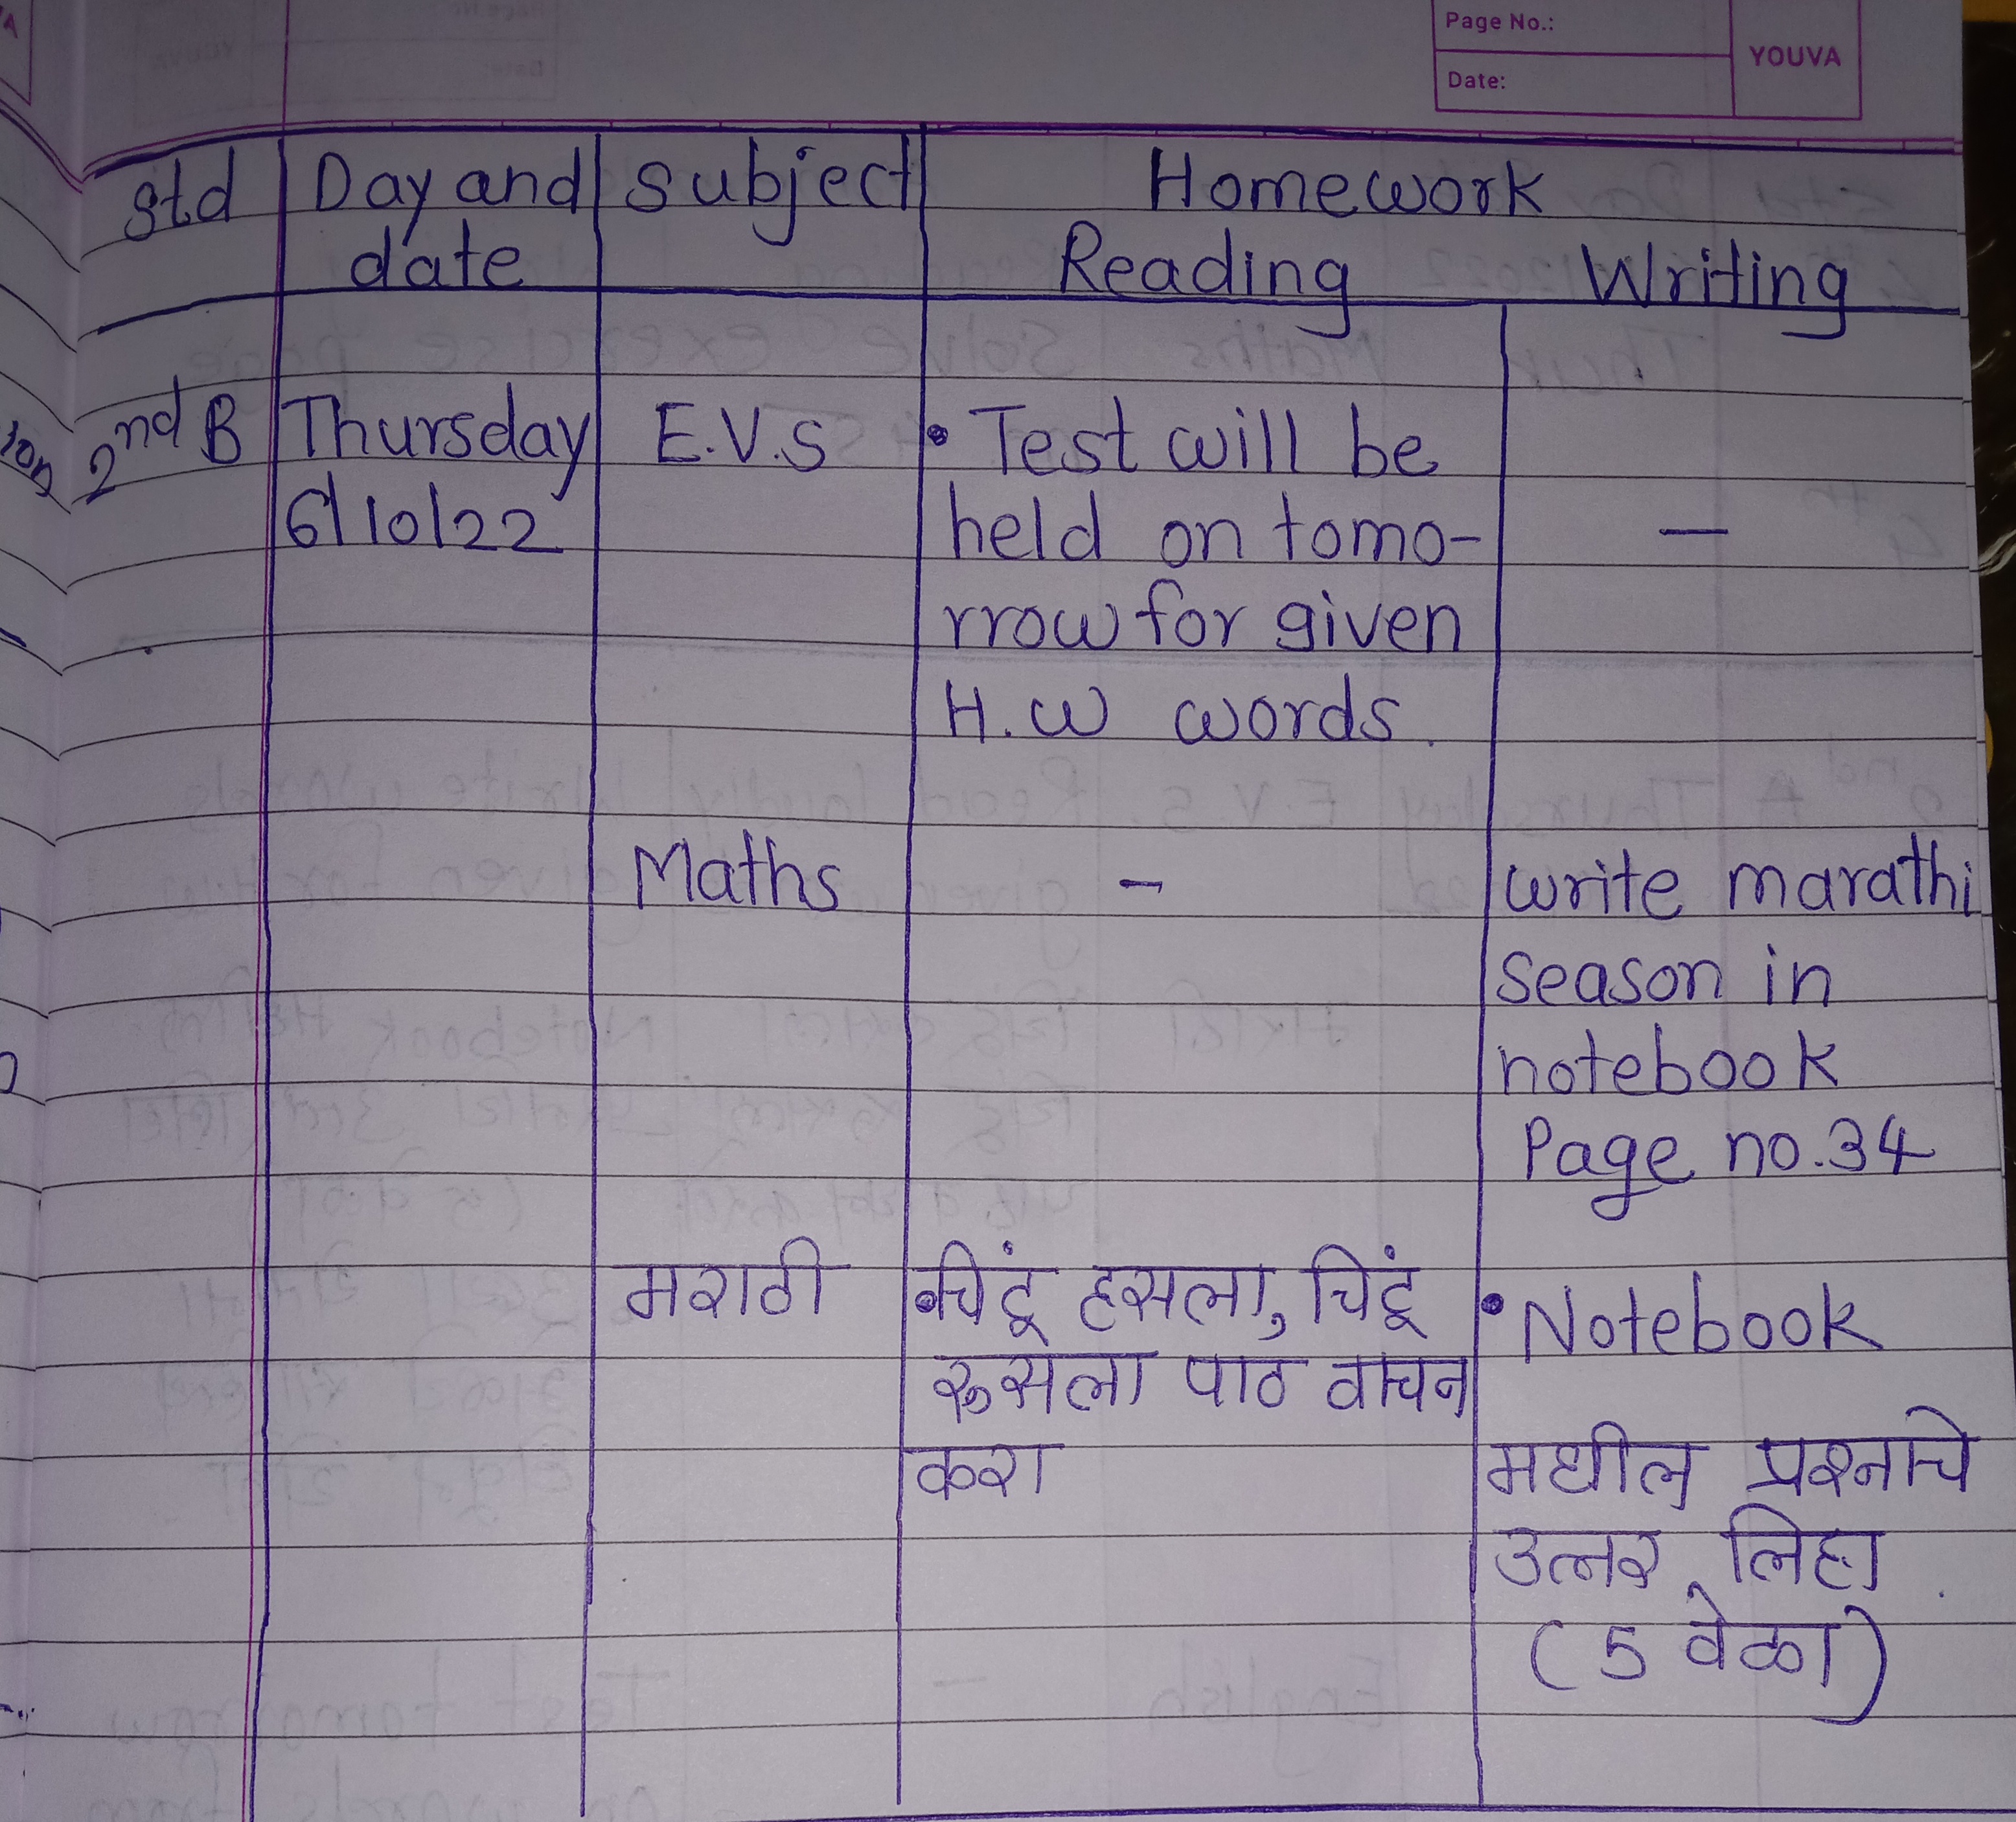 Page No.:
YOUVA
Date:
Std Day and Subject Homework
date Reading Writing
2nd B Thursday E.V.S • Test will be
6/10/22 held on tomo- –
rrow for given
H.W words.
Maths – write marathi
season in
notebook
Page no.34
मराठी •चिंटू हसला, चिंटू • Notebook
रुसला पाठ वाचन
करा मधील प्रश्नाचे
उत्तर लिहा.
(5 वेळा)